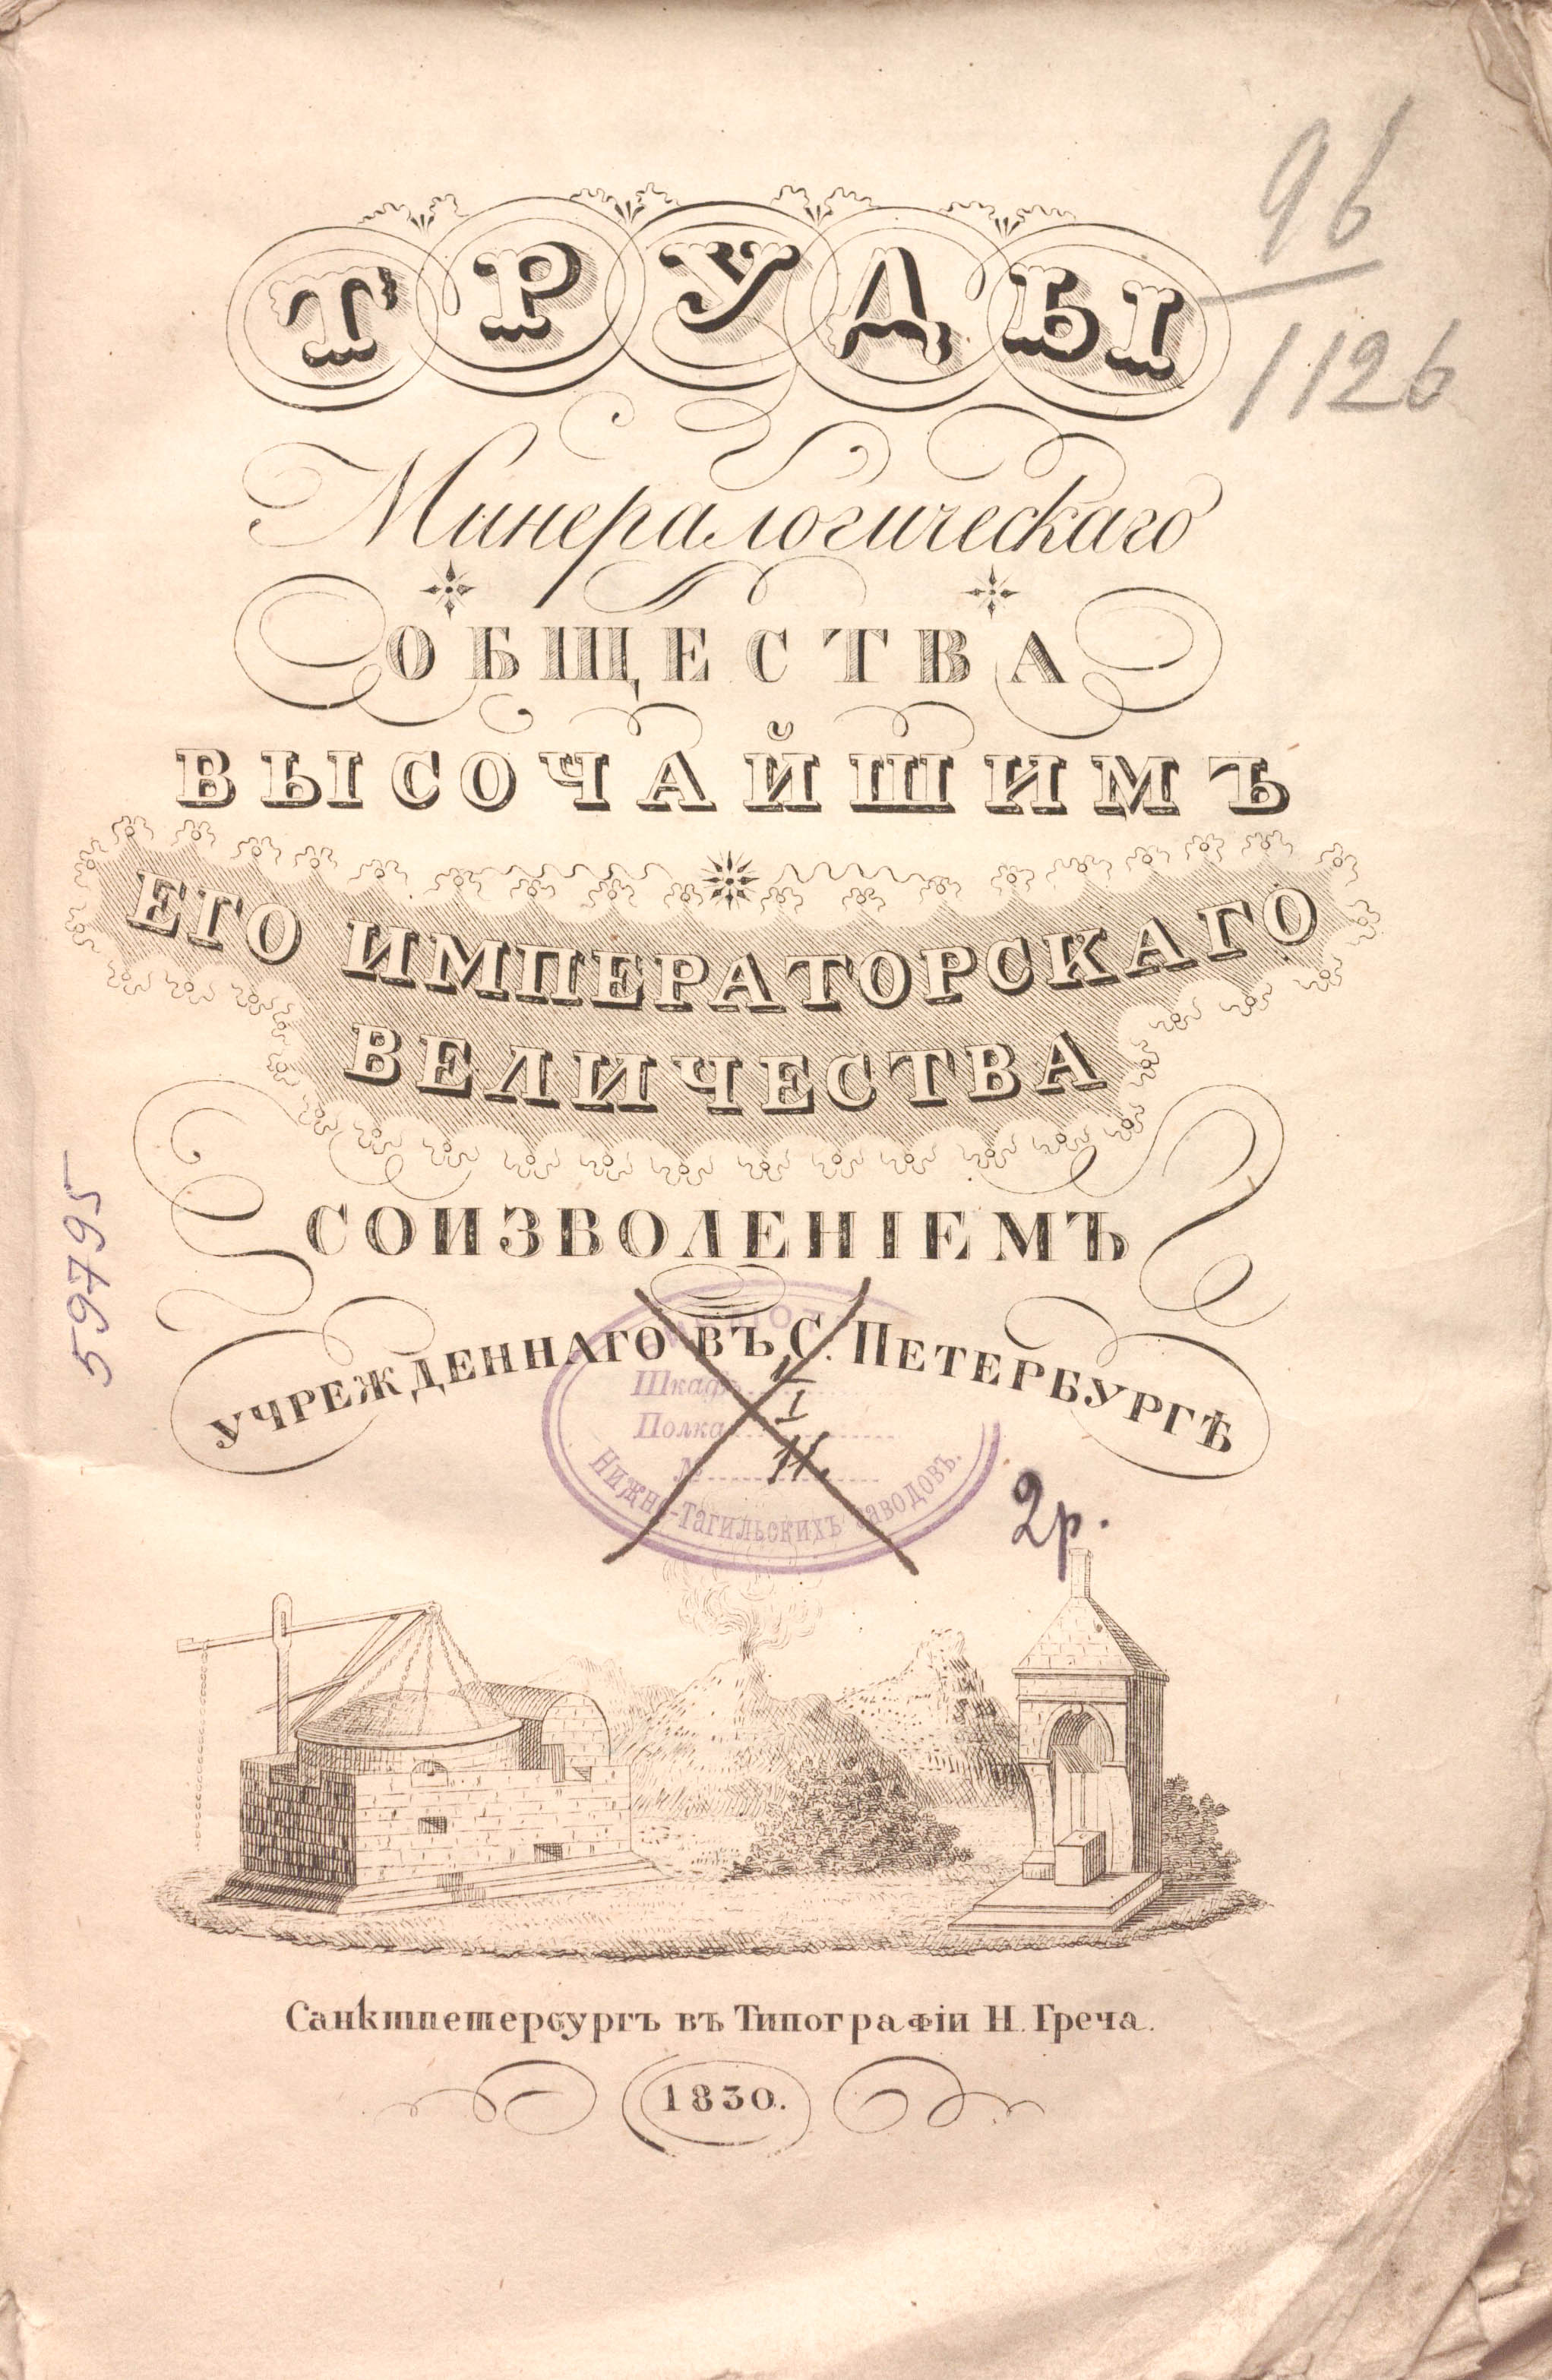 96
1126
ТРУДЫ
Минералогическаго
ОБЩЕСТВА
ВЫСОЧАЙШИМЪ
ЕГО ИМПЕРАТОРСКАГО
ВЕЛИЧЕСТВА
СОИЗВОЛЕНІЕМЪ
59795
УЧРЕЖДЕННАГО ВЪ С. ПЕТЕРБУРГѢ
Шкафъ
Полка I
№ 11.
Нижне-Тагильскихъ заводовъ.
2р.
Санктпетербургъ въ Типографіи Н. Греча.
1830.